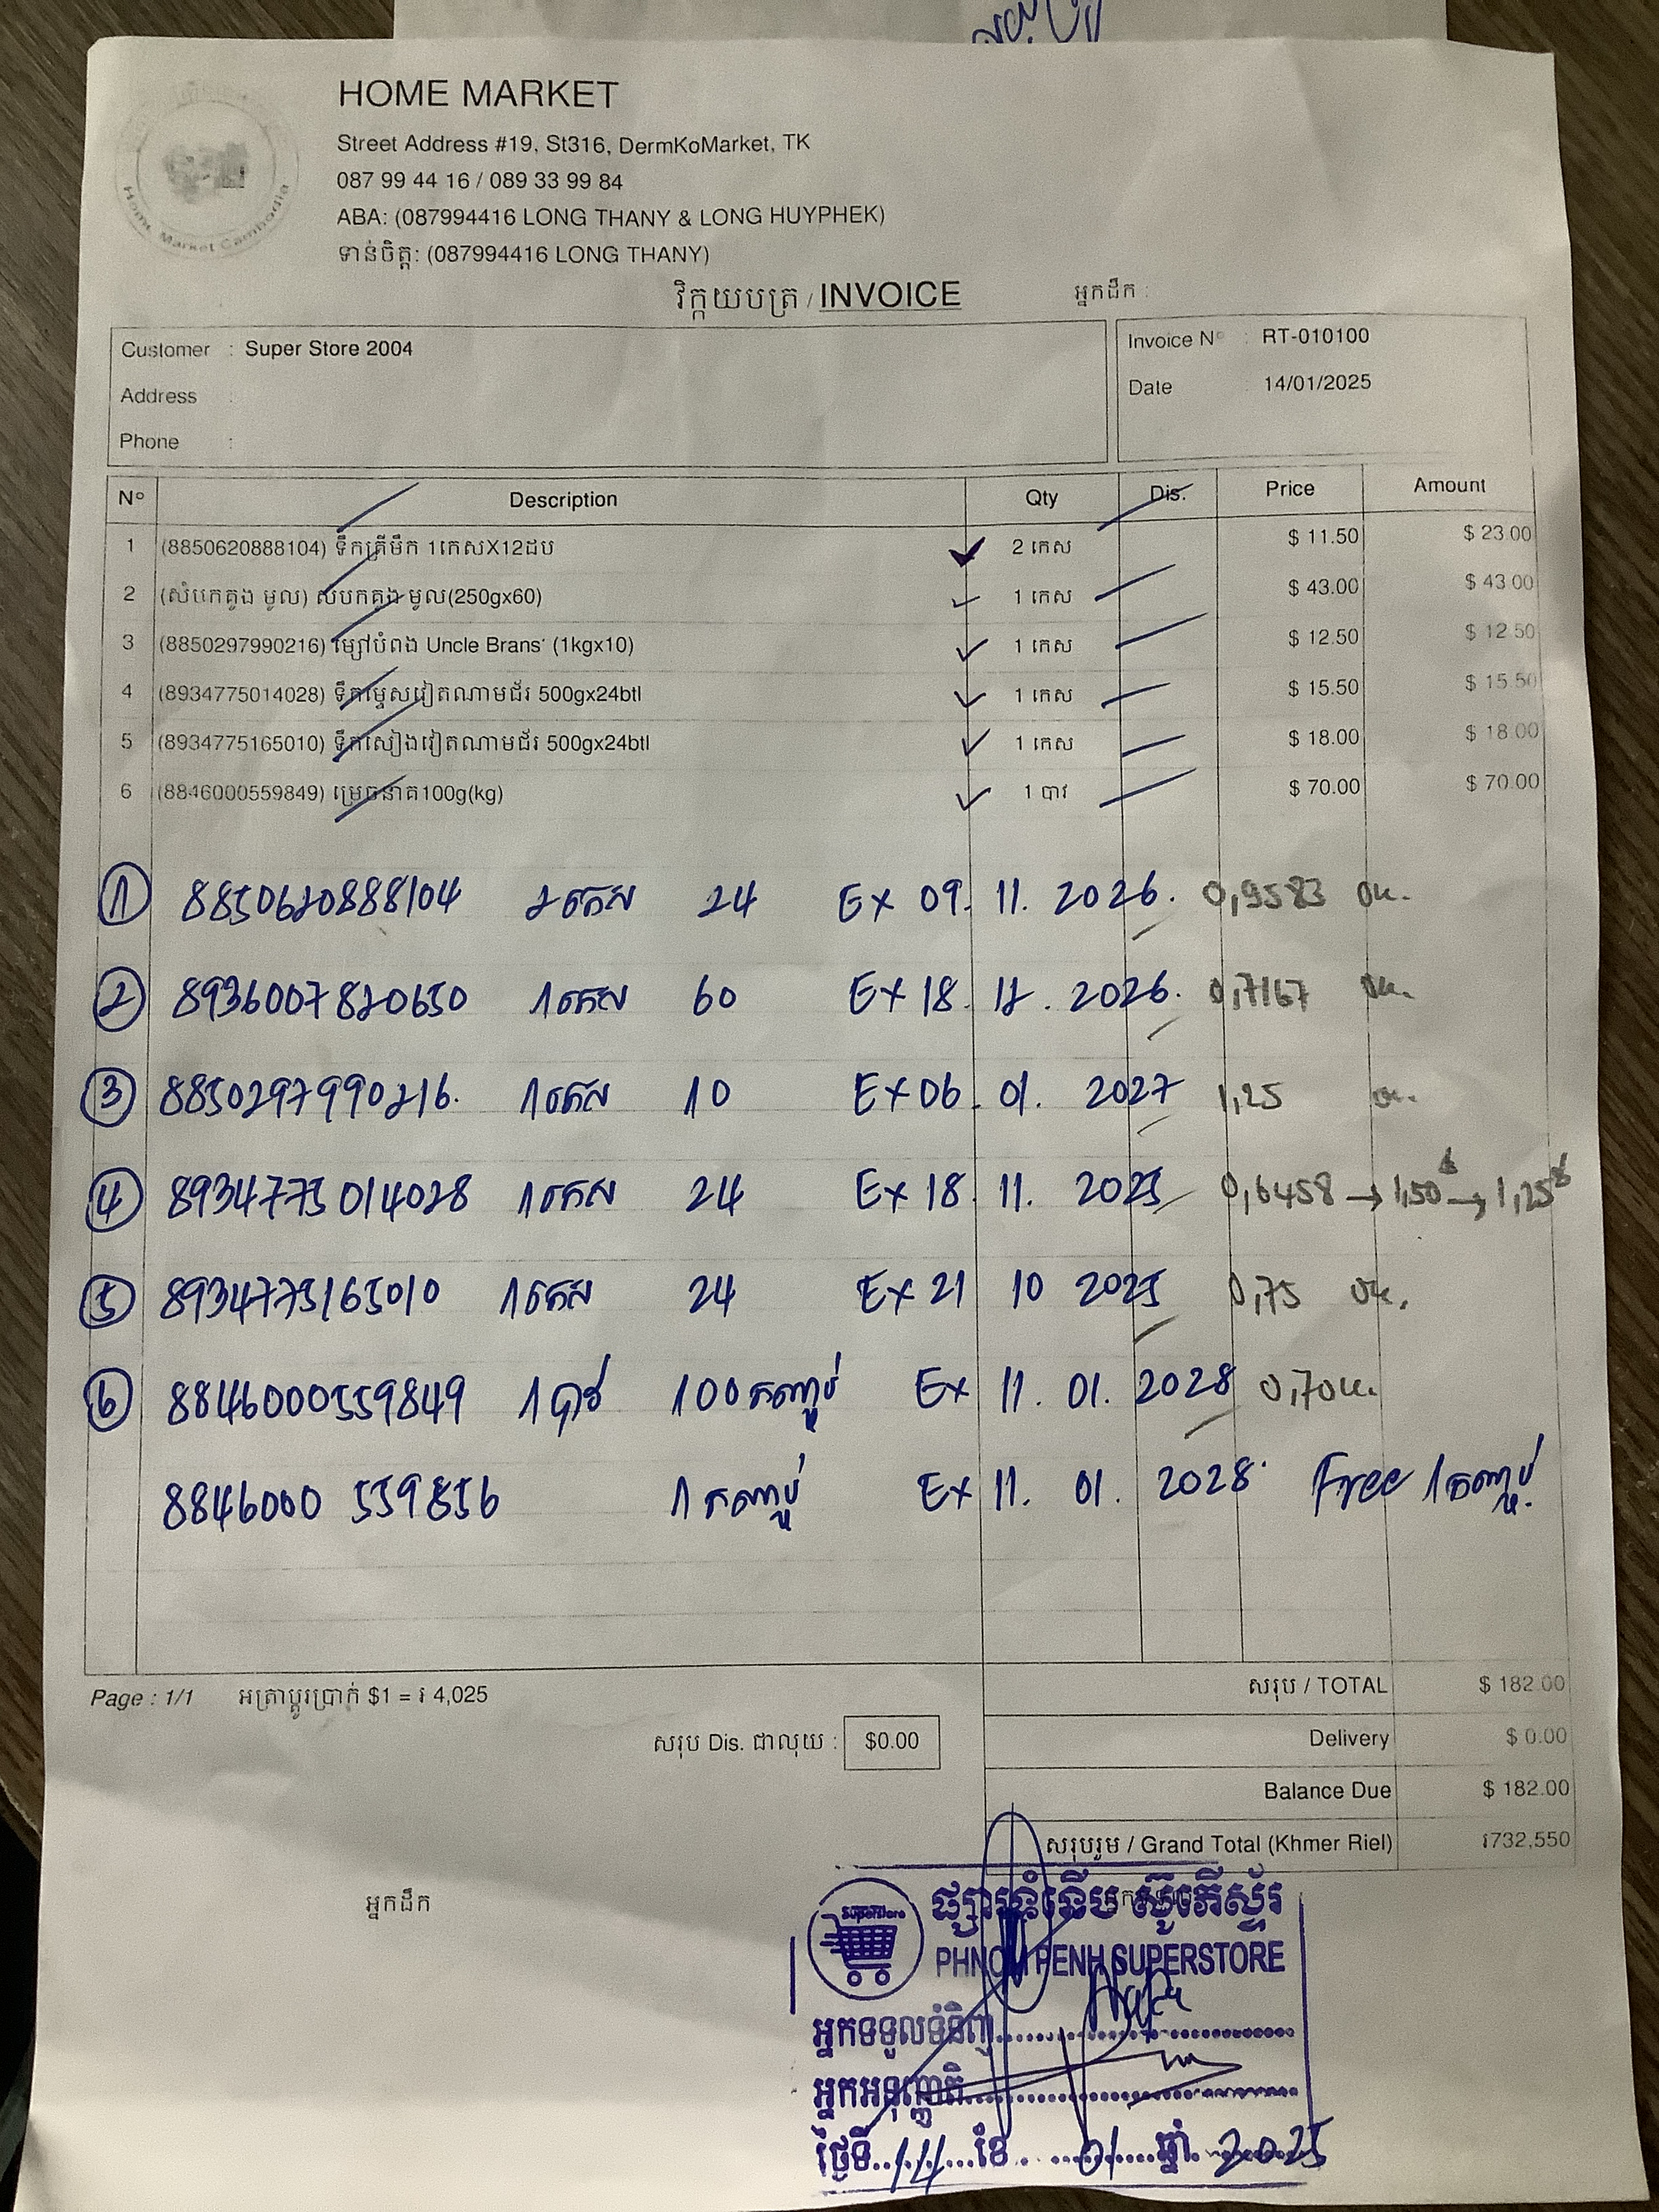 HOME MARKET
Street Address #19, St316, DermKoMarket, TK
087 99 44 16 / 089 33 99 84
ABA: (087994416 LONG THANY & LONG HUYPHEK)
ទាន់ចិត្ត: (087994416 LONG THANY)
Home Market Cambodia
វិក្កយបត្រ / INVOICE អ្នកដឹក :
Customer : Super Store 2004
Address :
Phone :
Invoice Nº : RT-010100
Date : 14/01/2025
Nº Description Qty Dis. Price Amount
1 (8850620888104) ទឹកត្រីមឹក 1កេសX12ដប 2 កេស $ 11.50 $ 23.00
2 (សំបកគូង មូល) សំបកគូង មូល(250gx60) 1 កេស $ 43.00 $ 43.00
3 (8850297990216) ម្សៅបំពង Uncle Brans' (1kgx10) 1 កេស $ 12.50 $ 12.50
4 (8934775014028) ទឹកម្ទេសវៀតណាមជ័រ 500gx24btl 1 កេស $ 15.50 $ 15.50
5 (8934775165010) ទឹកសៀងវៀតណាមជ័រ 500gx24btl 1 កេស $ 18.00 $ 18.00
6 (8846000559849) ម្រេចនាគ100g(kg) 1 បាវ $ 70.00 $ 70.00
1 8850620888104 2កេស 24 Ex 09. 11. 2026. 0,9583 ok.
2 8936007820650 1កេស 60 Ex 18. 12. 2026. 0,7167 ok.
3 8850297990216. 1កេស 10 Ex 06. 01. 2027 1,25 ok.
4 8934775014028 1កេស 24 Ex 18. 11. 2025 0,6458 → 1,50$ → 1,25$
5 8934775165010 1កេស 24 Ex 21 10 2025 0,75 ok.
6 8846000559849 1បាវ 100កញ្ចប់ Ex 11. 01. 2028 0,70 ok.
8846000 559856 1កញ្ចប់ Ex 11. 01. 2028. Free 1កញ្ចប់.
Page : 1/1 អត្រាប្តូរប្រាក់ $1 = ៛ 4,025
សរុប / TOTAL $ 182.00
សរុប Dis. ជាលុយ : $0.00
Delivery $ 0.00
Balance Due $ 182.00
សរុបរួម / Grand Total (Khmer Riel) ៛732,550
អ្នកដឹក
Superstore
ផ្សារទំនើប ស៊ូភើស្ទ័រ
PHNOM PENH SUPERSTORE
អ្នកទទួលទំនិញ
អ្នកអនុញ្ញាតិ
ថ្ងៃទី 14 ខែ 01 ឆ្នាំ 2025